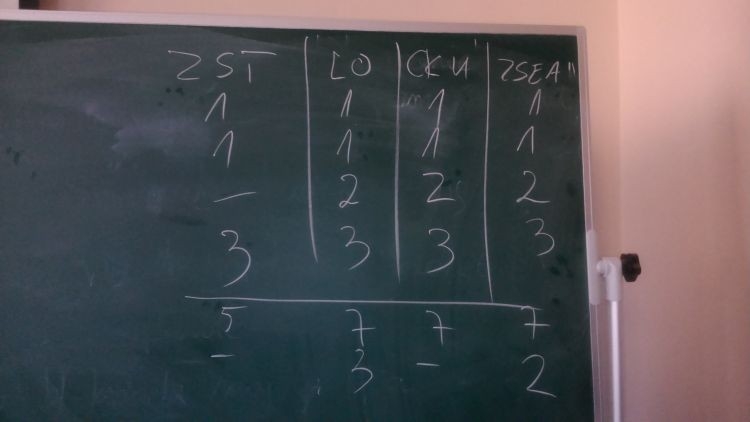 ZST LO CKU ZSEA
1 1 1 1
1 1 1 1
- 2 2 2
3 3 3 3
5 7 7 7
- 3 - 2